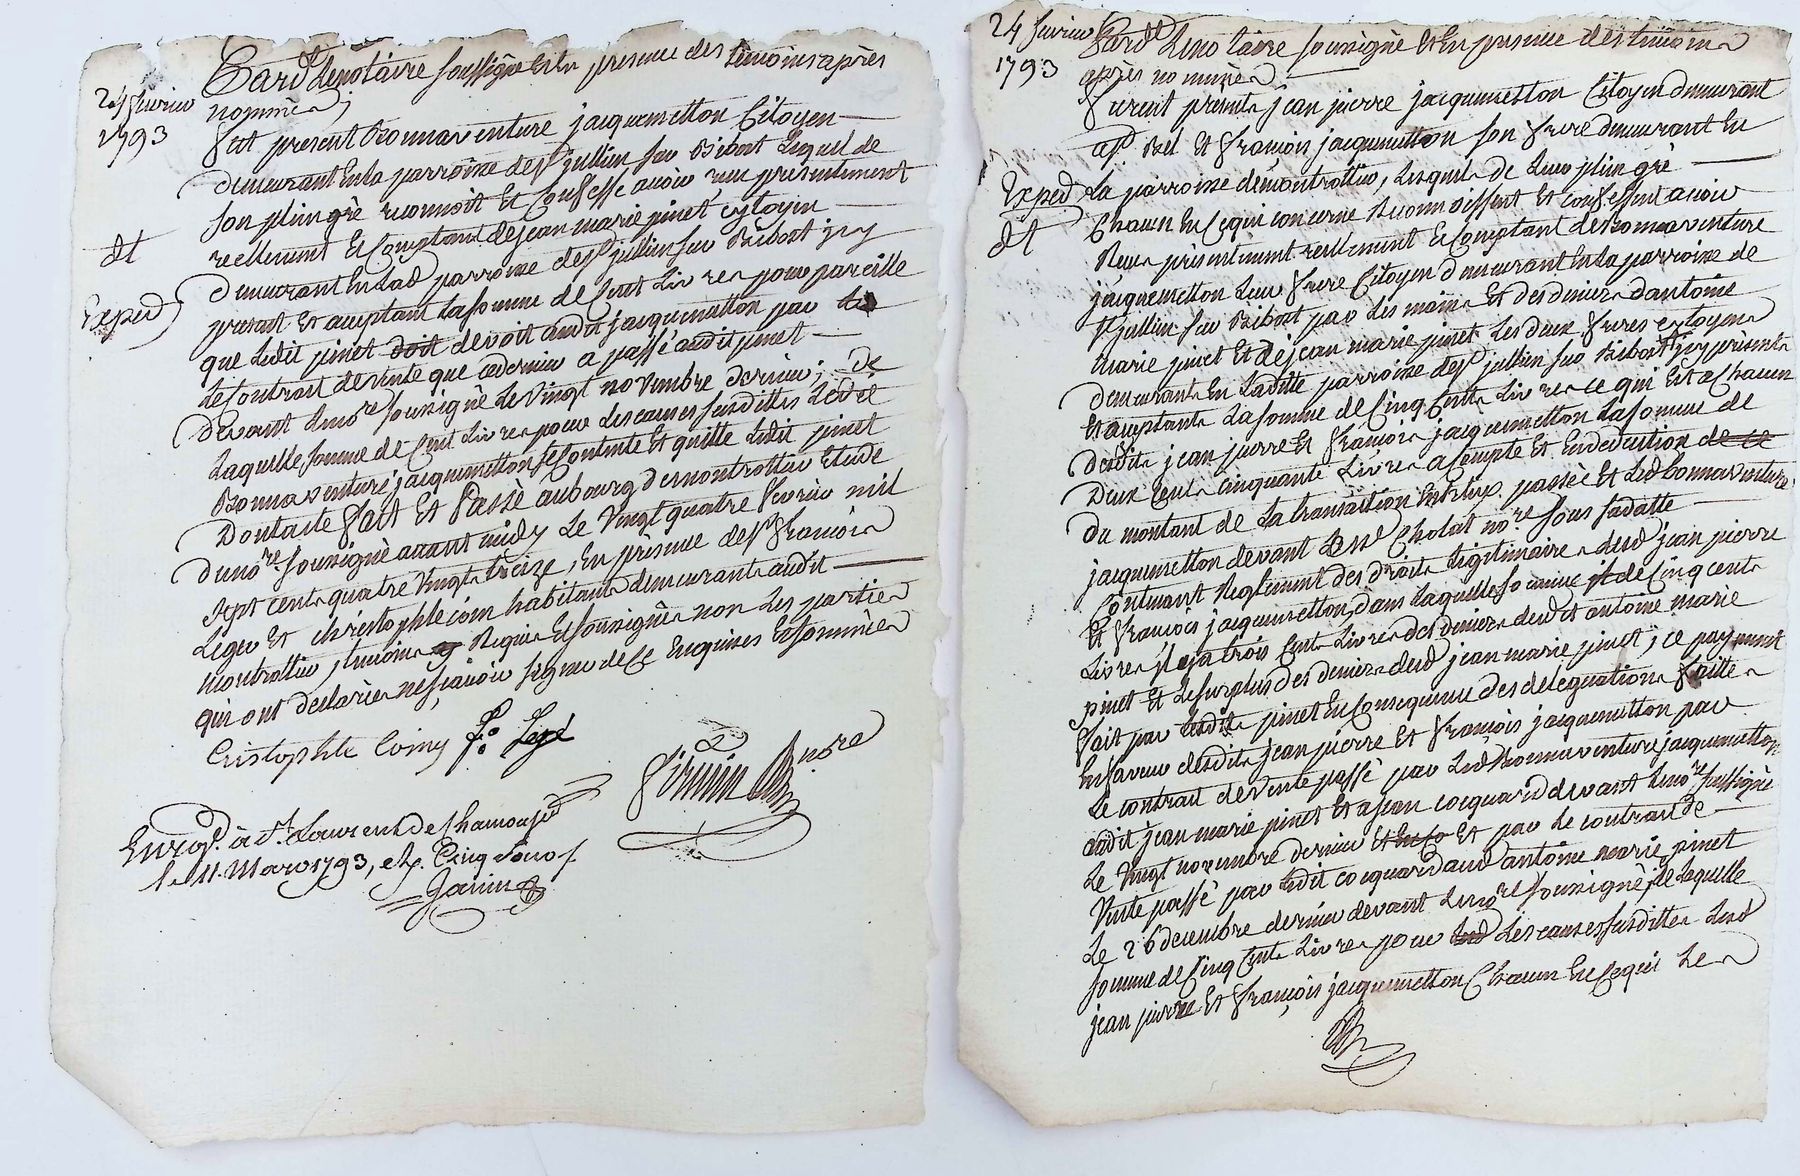 24 fevrier
1793
dt
Exped
Pard.t Le notaire soussigné Et En presence des temoins après
nommèes,
fut present Bonnaventure jacquemetton Citoyen
demeurant En la parroisse de st jullien sur Bibost Lequel de
son plein grè reconnoit Et Confesse avoir reçu presentement
reellement Et Comptant de jean marie pinet cytoyen
demeurant En lad parroisse de st jullien sur Bibost icy
present Et acceptant la somme de Cent Livres pour pareille
que Ledit pinet doit devoit audit jacquemetton par
Le Contrat de vente que ce dernier a passé audit pinet
devant Le nore soussignè Le Vingt novembre dernier; de
Laquelle somme de Cent Livres pour Les causes susdittes Led
Bonnaventure jacquemetton se Contente Et quitte Ledit pinet
Dont acte fait Et Passè au bourg de montrottier Etude
du nore soussignè avant midy Le Vingt quatre fevrier mil
sept cents quatre Vingts treize, En présence de sr françois
Leger Et christophle coin habitants demeurants audit
montrottier, temoins Requis Et soussignès non Les parties
qui ont declarèes ne sçavoir signer de Ce Enquises Et sommèes
Cristophle Coiny f. Legé
firmin nore
Enrg.é à St Laurent de Chamousset
le 11 Mars 1793, Cinq sous
Janin
24 fevrier
1793
Exped
dt
Pard.t Le notaire soussigné Et En presence des temoins
après nommèes
furent présents jean pierre jacquemetton Citoyen demeurant
Bel Et françois jacquemetton son frere demeurant En
La parroisse de montrottier, Lesquels de Leur plein gré
Chacun En ce qui Concerne Reconnoissent Et confessent avoir
Reçu présentement reellement Et Comptant de Bonnaventure
jacquemetton Leur frere Citoyen demeurant En La parroisse de
st jullien sur Bibost par Les mains Et des deniers d'antoine
marie pinet Et de jean marie pinet Les deux freres cytoyens
demeurants En Laditte parroisse de st jullien sur Bibost icy présents
Et acceptants La somme de Cinq Cents Livres ce qui Est a Chacun
desdits jean pierre Et françois jacquemetton La somme de
Deux Cents cinquante Livres a Compte Et En deduction de ce
du montant de La transaction Entr'eux passée Et Led Bonnaventure
jacquemetton devant Cholat nore sous sa datte
Contenant Reglement des droits Legitimaires desd jean pierre
Et françois jacquemetton, dans Laquelle somme de Cinq cents
Livres il y a trois Cents Livres des deniers dudit antoine marie
pinet Et Le surplus des deniers dud jean marie pinet; ce payement
fait par Lesdits pinet En Consequence des delegations faittes
En faveur desdits jean pierre Et françois jacquemetton par
Le contrat de vente passé par Led Bonnaventure jacquemetton
audit jean marie pinet Et a jean cocquard devant Le nore soussigné
Le Vingt novembre dernier Et par Le contrat de
Vente passé par Ledit cocquard aud antoine marie pinet
Le 26 decembre dernier devant Le nore soussigné, de Laquelle
somme de Cinq Cents Livres pour Les causes susdittes Lesd
jean pierre Et françois jacquemetton Chacun En Ce qui Les